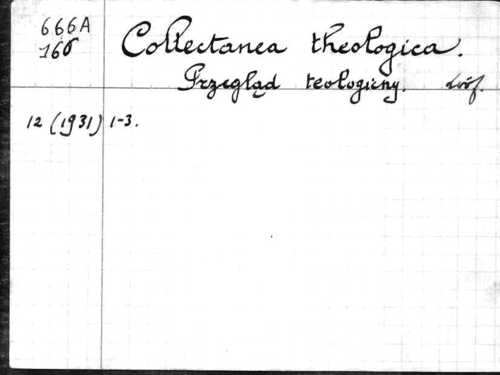 666A
166
Collectanea theologica.
Przegląd teologiczny. Lwów.
12 (1931) 1-3.